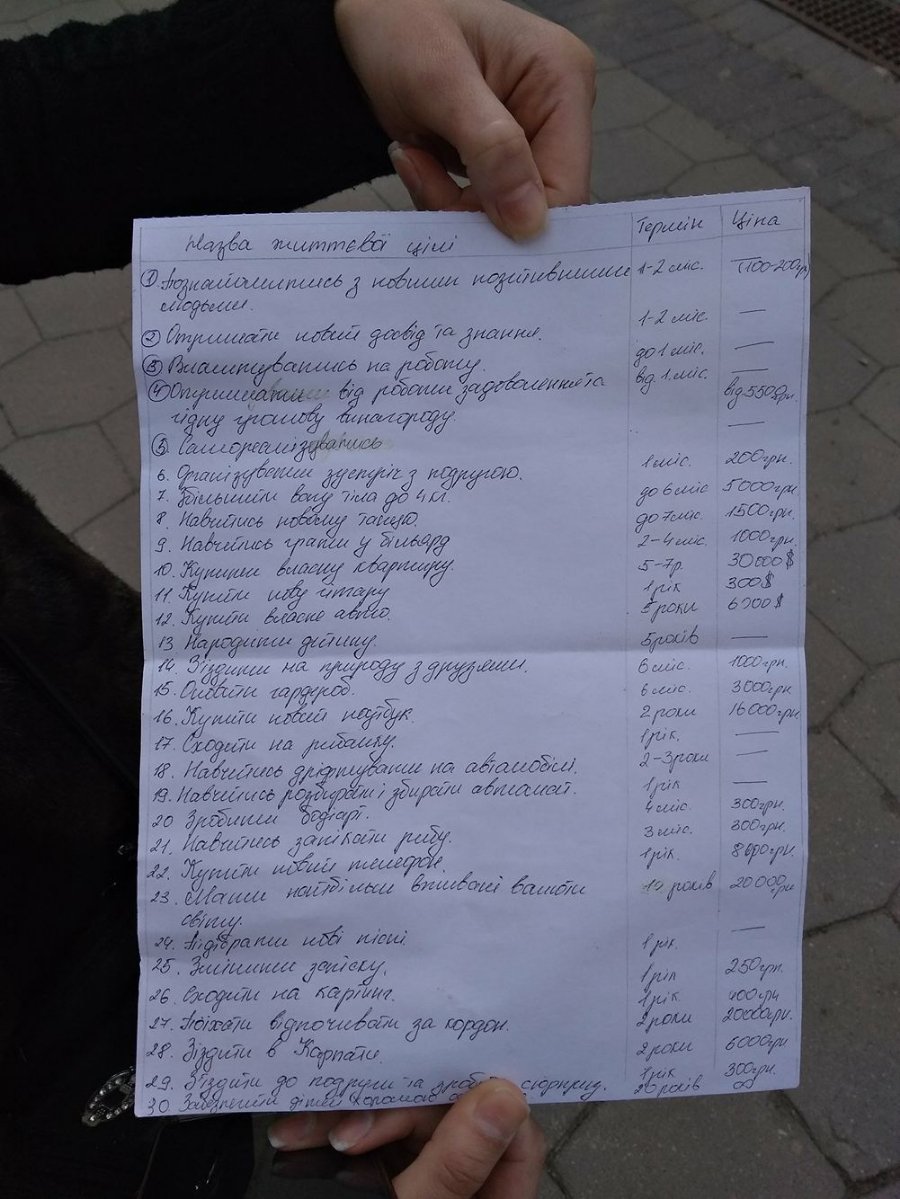 Назва життєвої цілі Термін Ціна
① Познайомитись з новими позитивними 1-2 міс. (100-200гр)
людьми.
② Отримати новий досвід та знання. 1-2 міс. —
③ Влаштуватись на роботу. до 1 міс. —
④ Отримувати від роботи задоволення та від 1.міс. — від 5500грн.
гідну грошову винагороду.
⑤ Самореалізуватись —
6. Організувати зустріч з подругою. 1 міс. 200грн.
7. Збільшити вагу тіла до 4 кг. до 6 міс 5000грн
8. Навчитись новому танцю. до 7 міс. 1500грн.
9. Навчитись грати у більярд 2-4 міс. 1000грн.
10. Купити власну квартиру. 5-7р. 30000$
11. Купити нову гітару 1 рік 300$
12. Купити власне авто. 5 роки 6000$
13. Народити дитину. 5 років —
14. З'їздити на природу з друзями. 6 міс. 1000грн.
15. Онлайн гардероб. 6 міс. 3000грн
16. Купити новий ноутбук. 2 роки 16000грн
17. Сходити на рибалку. 1 рік. —
18. Навчитись дріфтувати на автомобілі. 2-3роки —
19. Навчитись розбирати і збирати автомат. 1 рік —
20 Зробити бодіарт. 4 міс. 300грн.
21. Навчитись запікати рибу. 3 міс. 300грн.
22. Купити новий телефон. 1 рік. 8000грн.
23. Мати найбільш вживані валюти 10 років 20000грн
світу.
24. Підібрати нові пісні 1 рік. —
25. Змінити зачіску. 1 рік 250грн.
26. Сходити на картинг. 1 рік 400грн
27. Поїхати відпочивати за кордон. 2 роки 20000грн.
28. З'їздити в Карпати. 2 роки 6000грн
29. З'їздити до подруги та сюрприз. 1 рік 300грн.
30. Забезпечити дітей 20 років ∞